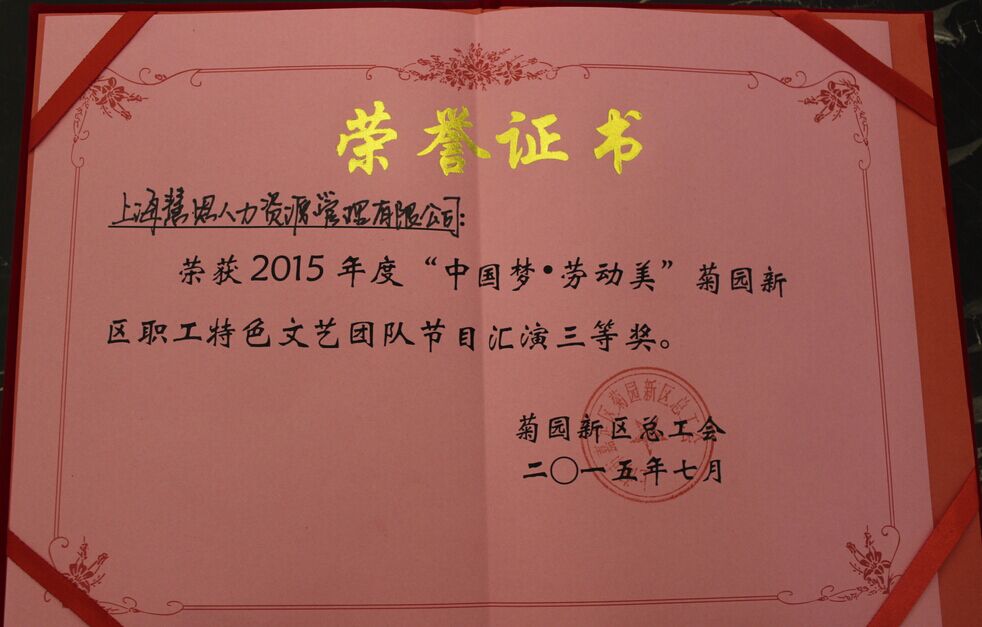 荣誉证书
上海慧恩人力资源管理有限公司:
荣获2015年度“中国梦•劳动美”菊园新
区职工特色文艺团队节目汇演三等奖。
菊园新区总工会
二〇一五年七月
菊园新区总工会